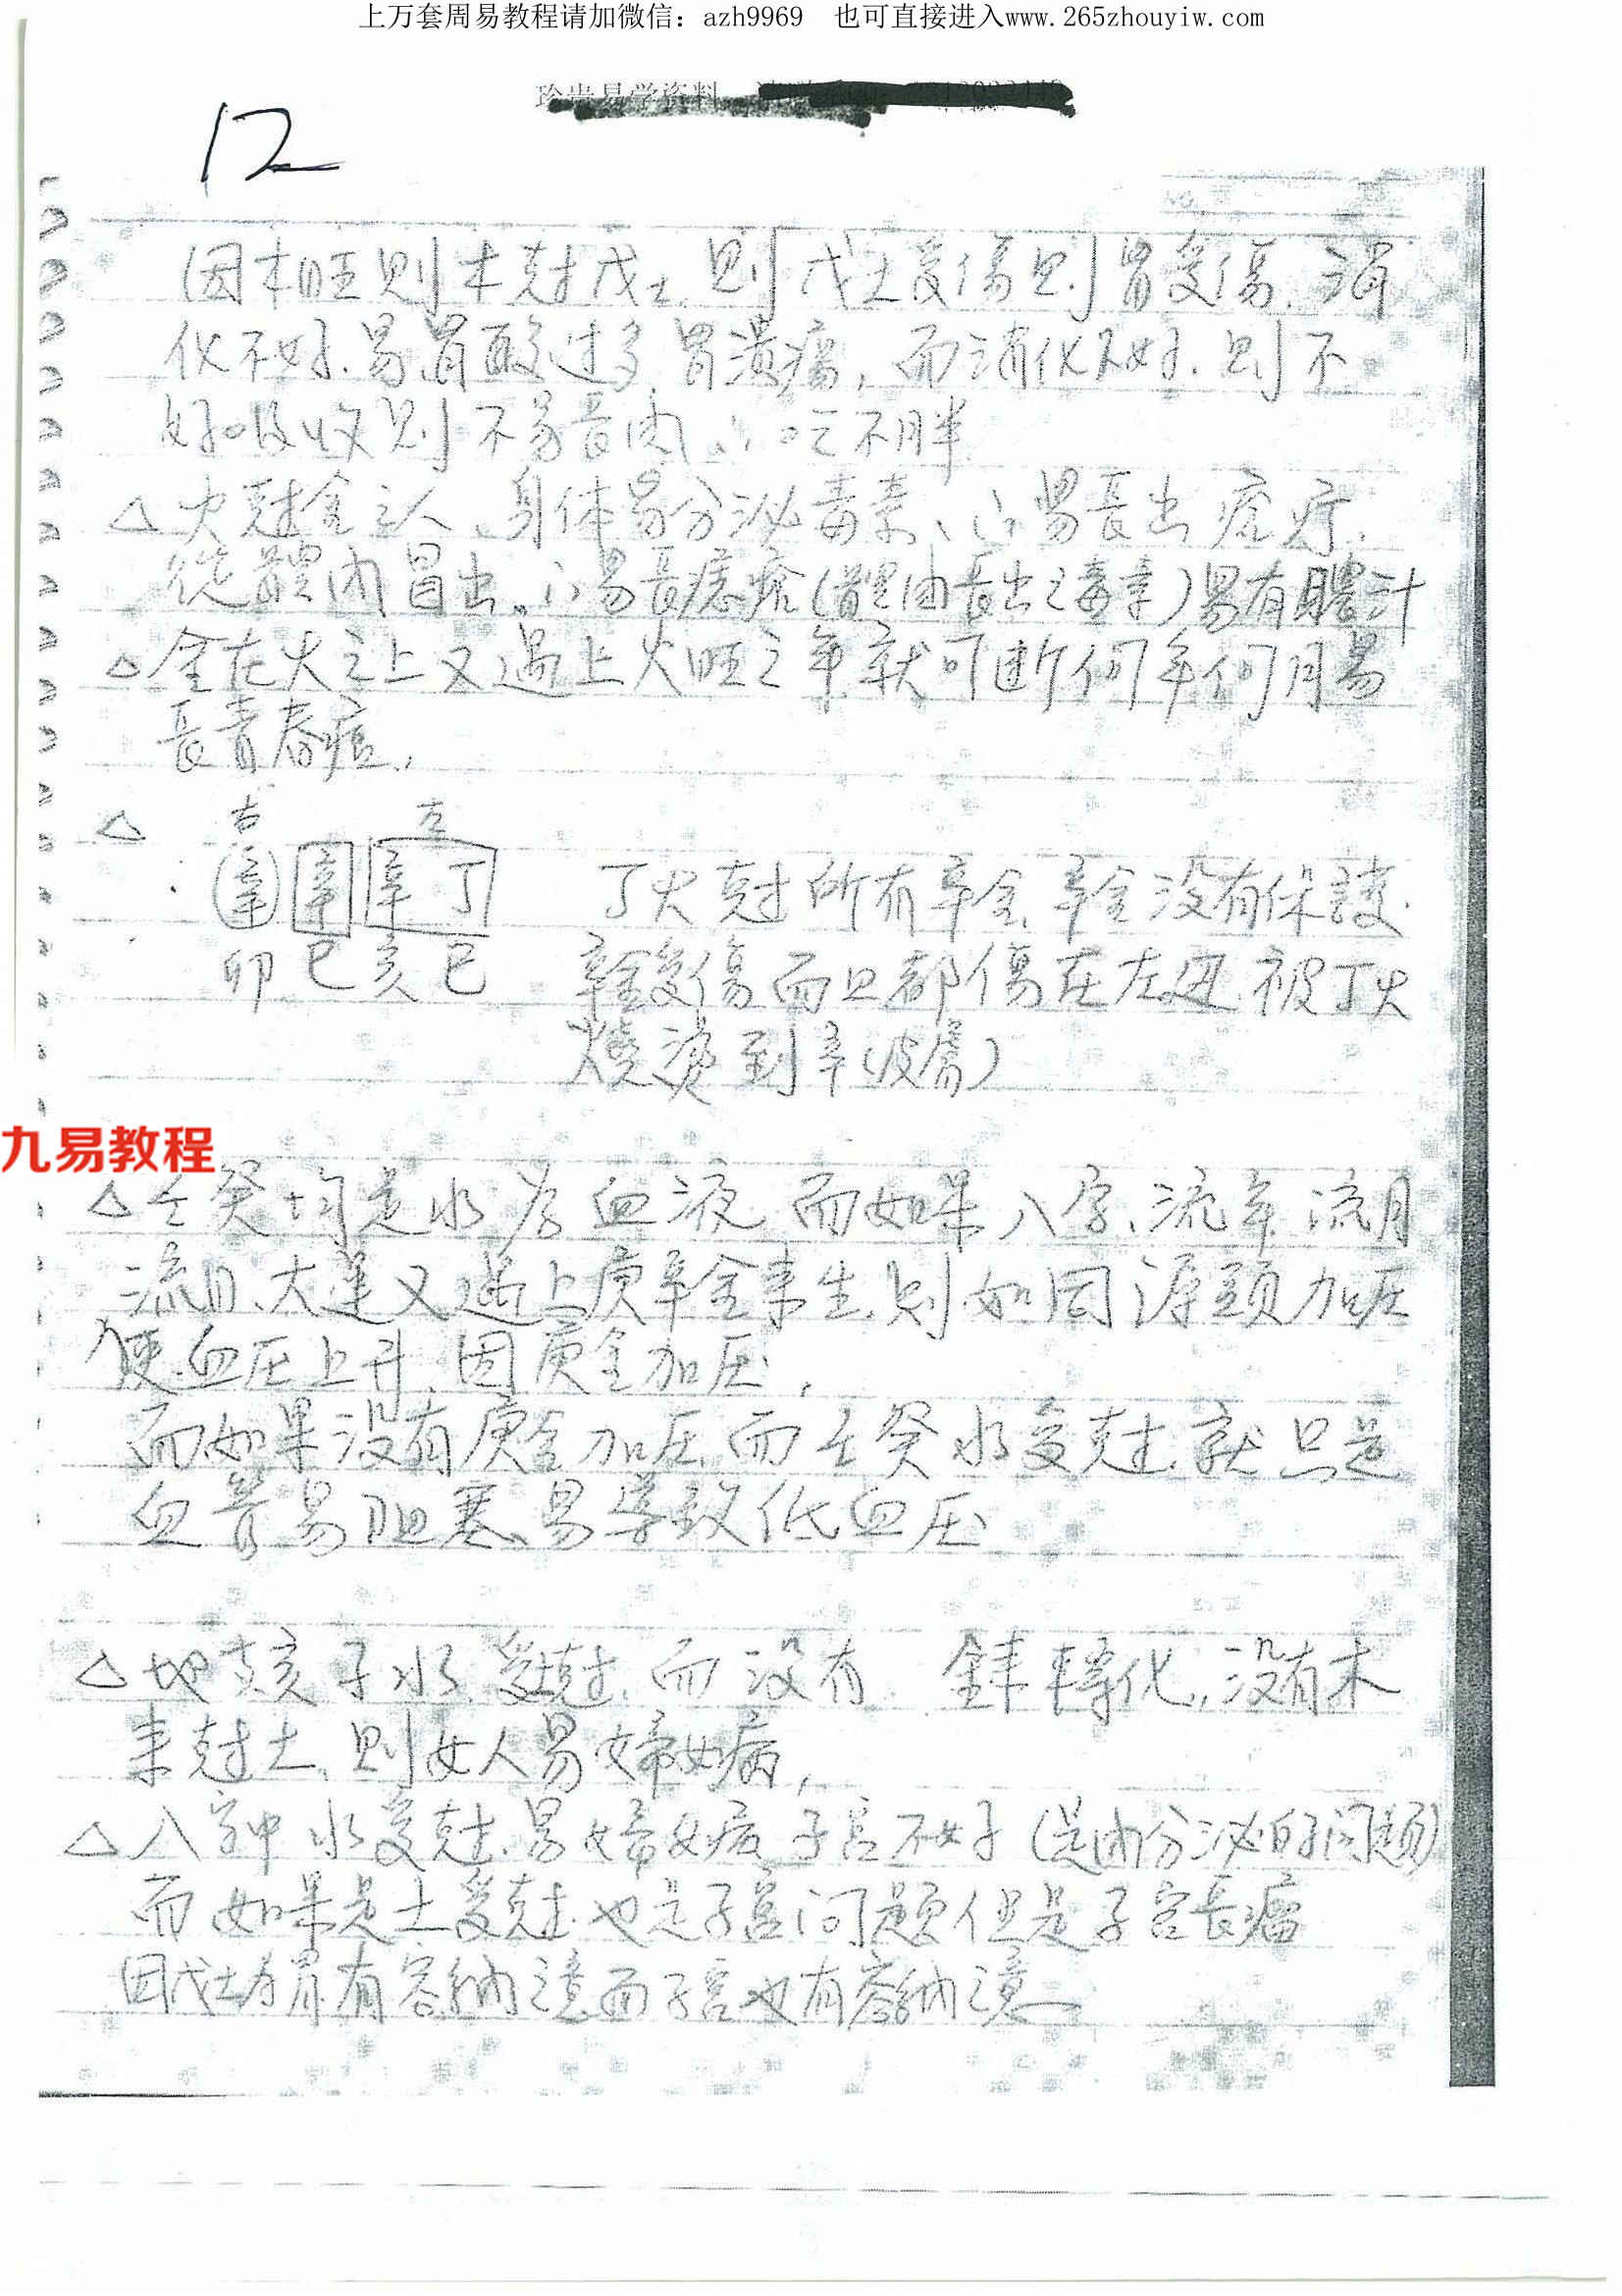 上万套周易教程请加微信：azh9969 也可直接进入www.265zhouyiw.com
珍贵易学资料
12
因木旺则木剋戊土，则戊土受傷则胃受傷，消
化不好，易胃酸过多，胃潰瘍，而消化不好，则不
好吸收则不易長肉，∴吃不胖
△火剋金之人，身体易分泌毒素，∴易長出
從體內冒出，∴易長痣瘡(體內長出之毒素)易有膿汁
△金在火之上又遇上火旺之年就可断何年何月易
長青春痘，
△ 右 左
辛 辛 辛 丁 丁火剋所有辛金，辛金没有保護
卯 巳 亥 巳 辛金受傷而且都傷在左边，被丁火
燒燙到辛(皮膚)
九易教程
△壬癸均是水為血液，而如果八字、流年、流月
流日、大運又遇上庚辛金來生，则如同源頭加压
使血压上升，因庚金加压，
而如果没有庚金加压，而壬癸水受剋，就只是
血管易阻塞，易導致低血压
△地支亥子水受剋，而没有金來轉化，没有木
來剋土，则女人易婦女病，
△八字中水受剋，易婦女病，子宮不好(是內分泌的问題)
而如果是土受剋，也是子宮问題但是子宮長瘤
因戊土为胃有容納之意而子宮也有容納之意